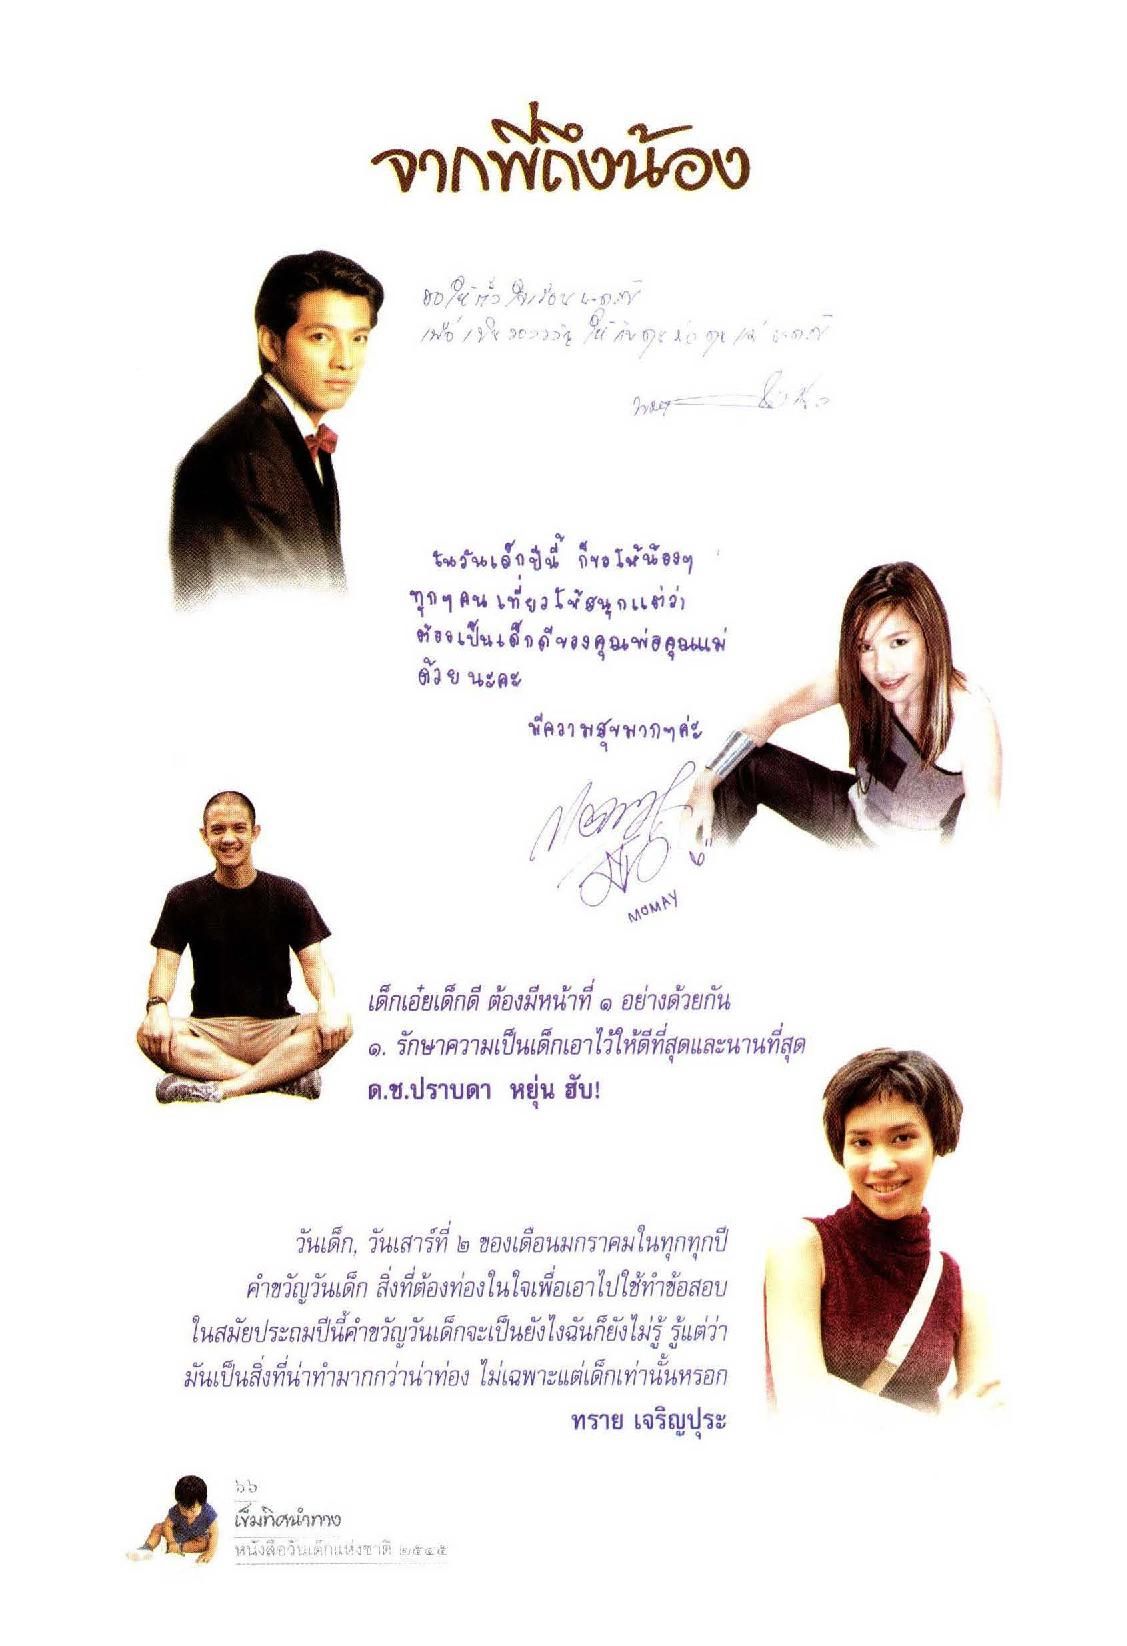 จากพี่ถึงน้อง
ขอให้ตั้งใจเรียนนะครับ
เพื่อเป็นของขวัญให้กับคุณพ่อคุณแม่นะครับ
ในวันเด็กปีนี้ ก็ขอให้น้องๆ
ทุกๆคน เที่ยวให้สนุกแต่ว่า
ต้องเป็นเด็กดีของคุณพ่อคุณแม่
ด้วยนะคะ
มีความสุขมากๆค่ะ
MOMAY
เด็กเอ๋ยเด็กดี ต้องมีหน้าที่ ๑ อย่างด้วยกัน
๑. รักษาความเป็นเด็กเอาไว้ให้ดีที่สุดและนานที่สุด
ด.ช.ปราบดา หยุ่น ฮับ!
วันเด็ก, วันเสาร์ที่ ๒ ของเดือนมกราคมในทุกทุกปี
คำขวัญวันเด็ก สิ่งที่ต้องท่องในใจเพื่อเอาไปใช้ทำข้อสอบ
ในสมัยประถมปีนี้คำขวัญวันเด็กจะเป็นยังไงฉันก็ยังไม่รู้ รู้แต่ว่า
มันเป็นสิ่งที่น่าทำมากกว่าน่าท่อง ไม่เฉพาะแต่เด็กเท่านั้นหรอก
ทราย เจริญปุระ
๖๖
เข็มทิศนำทาง
หนังสือวันเด็กแห่งชาติ ๒๕๔๕